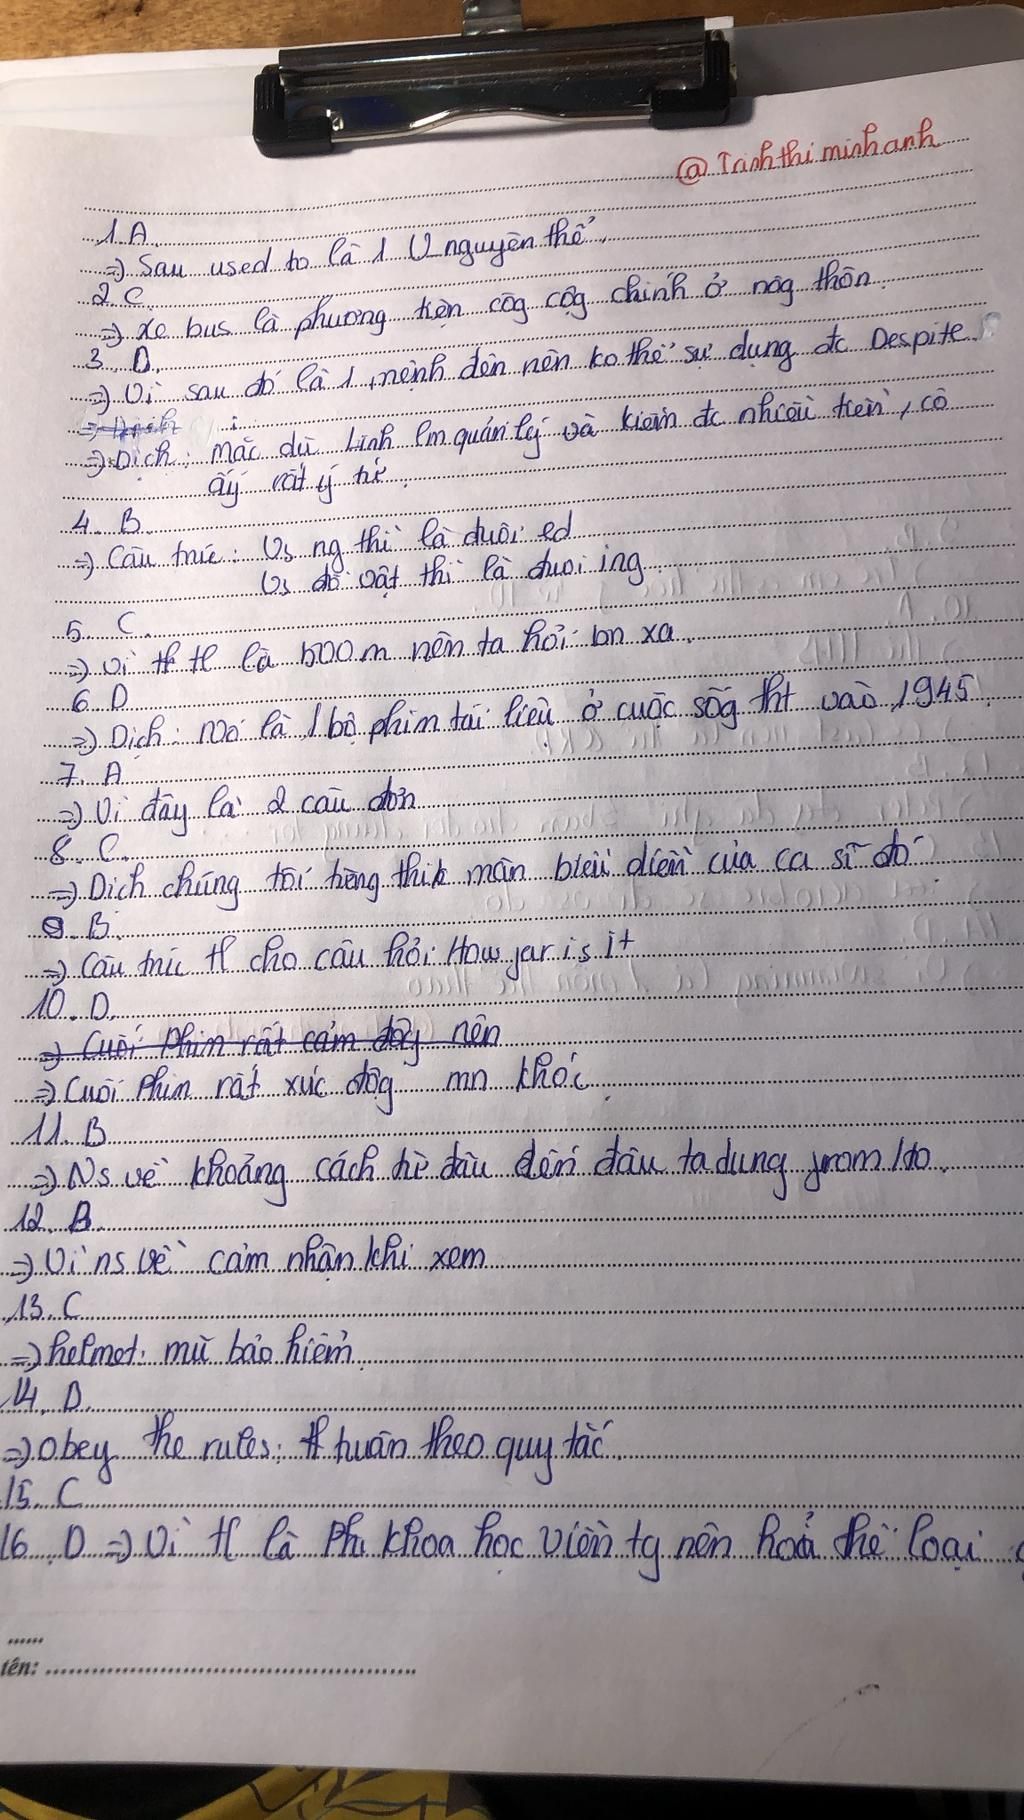 @ Trinh thi minh anh
1. A.
=> Sau used to là 1 V_nguyên thể.
2. C
=> xe bus là phương tiện côg cộg chính ở nôg thôn.
3. D.
=> Vì sau đó là 1 mệnh đên nên ko thể sử dụng đc Despite
=> Dịch: mặc dù Linh lm quản lý và kiếm đc nhiều tiền, cô
ấy rất ý tứ.
4. B.
=> Cấu trúc: Vs ng thì là đuôi ed
Vs đồ vật thì là đuoi ing
5. C.
=> vì tl là 500m nên ta hỏi bn xa.
6. D
=> Dịch: Nó là 1 bộ phim tài liệu ở cuộc sốg tht vào 1945.
7. A
=> Vì đây là 2 câu đơn
8. C.
=> Dich chúng tôi từng thik màn biểu diễn của ca sĩ đó
9. B.
=> Cấu trúc tl cho câu hỏi: How far is it
10. D.
=> Cuối phim rất cảm độg nên
=> Cuối phim rất xúc độg mn khóc.
11. B
=> Ns về khoảng cách từ đâu đến đâu ta dung from/to.
12. B.
=> Vì ns về cảm nhận khi xem
13. C
=> helmet: mũ bảo hiểm.
14. D.
=> Obey the rules: tuân theo quy tắc.
15. C
16. D => Vì tl là Phi khoa học viễn tg nên hoỉ thể loại
......
tên: ..........